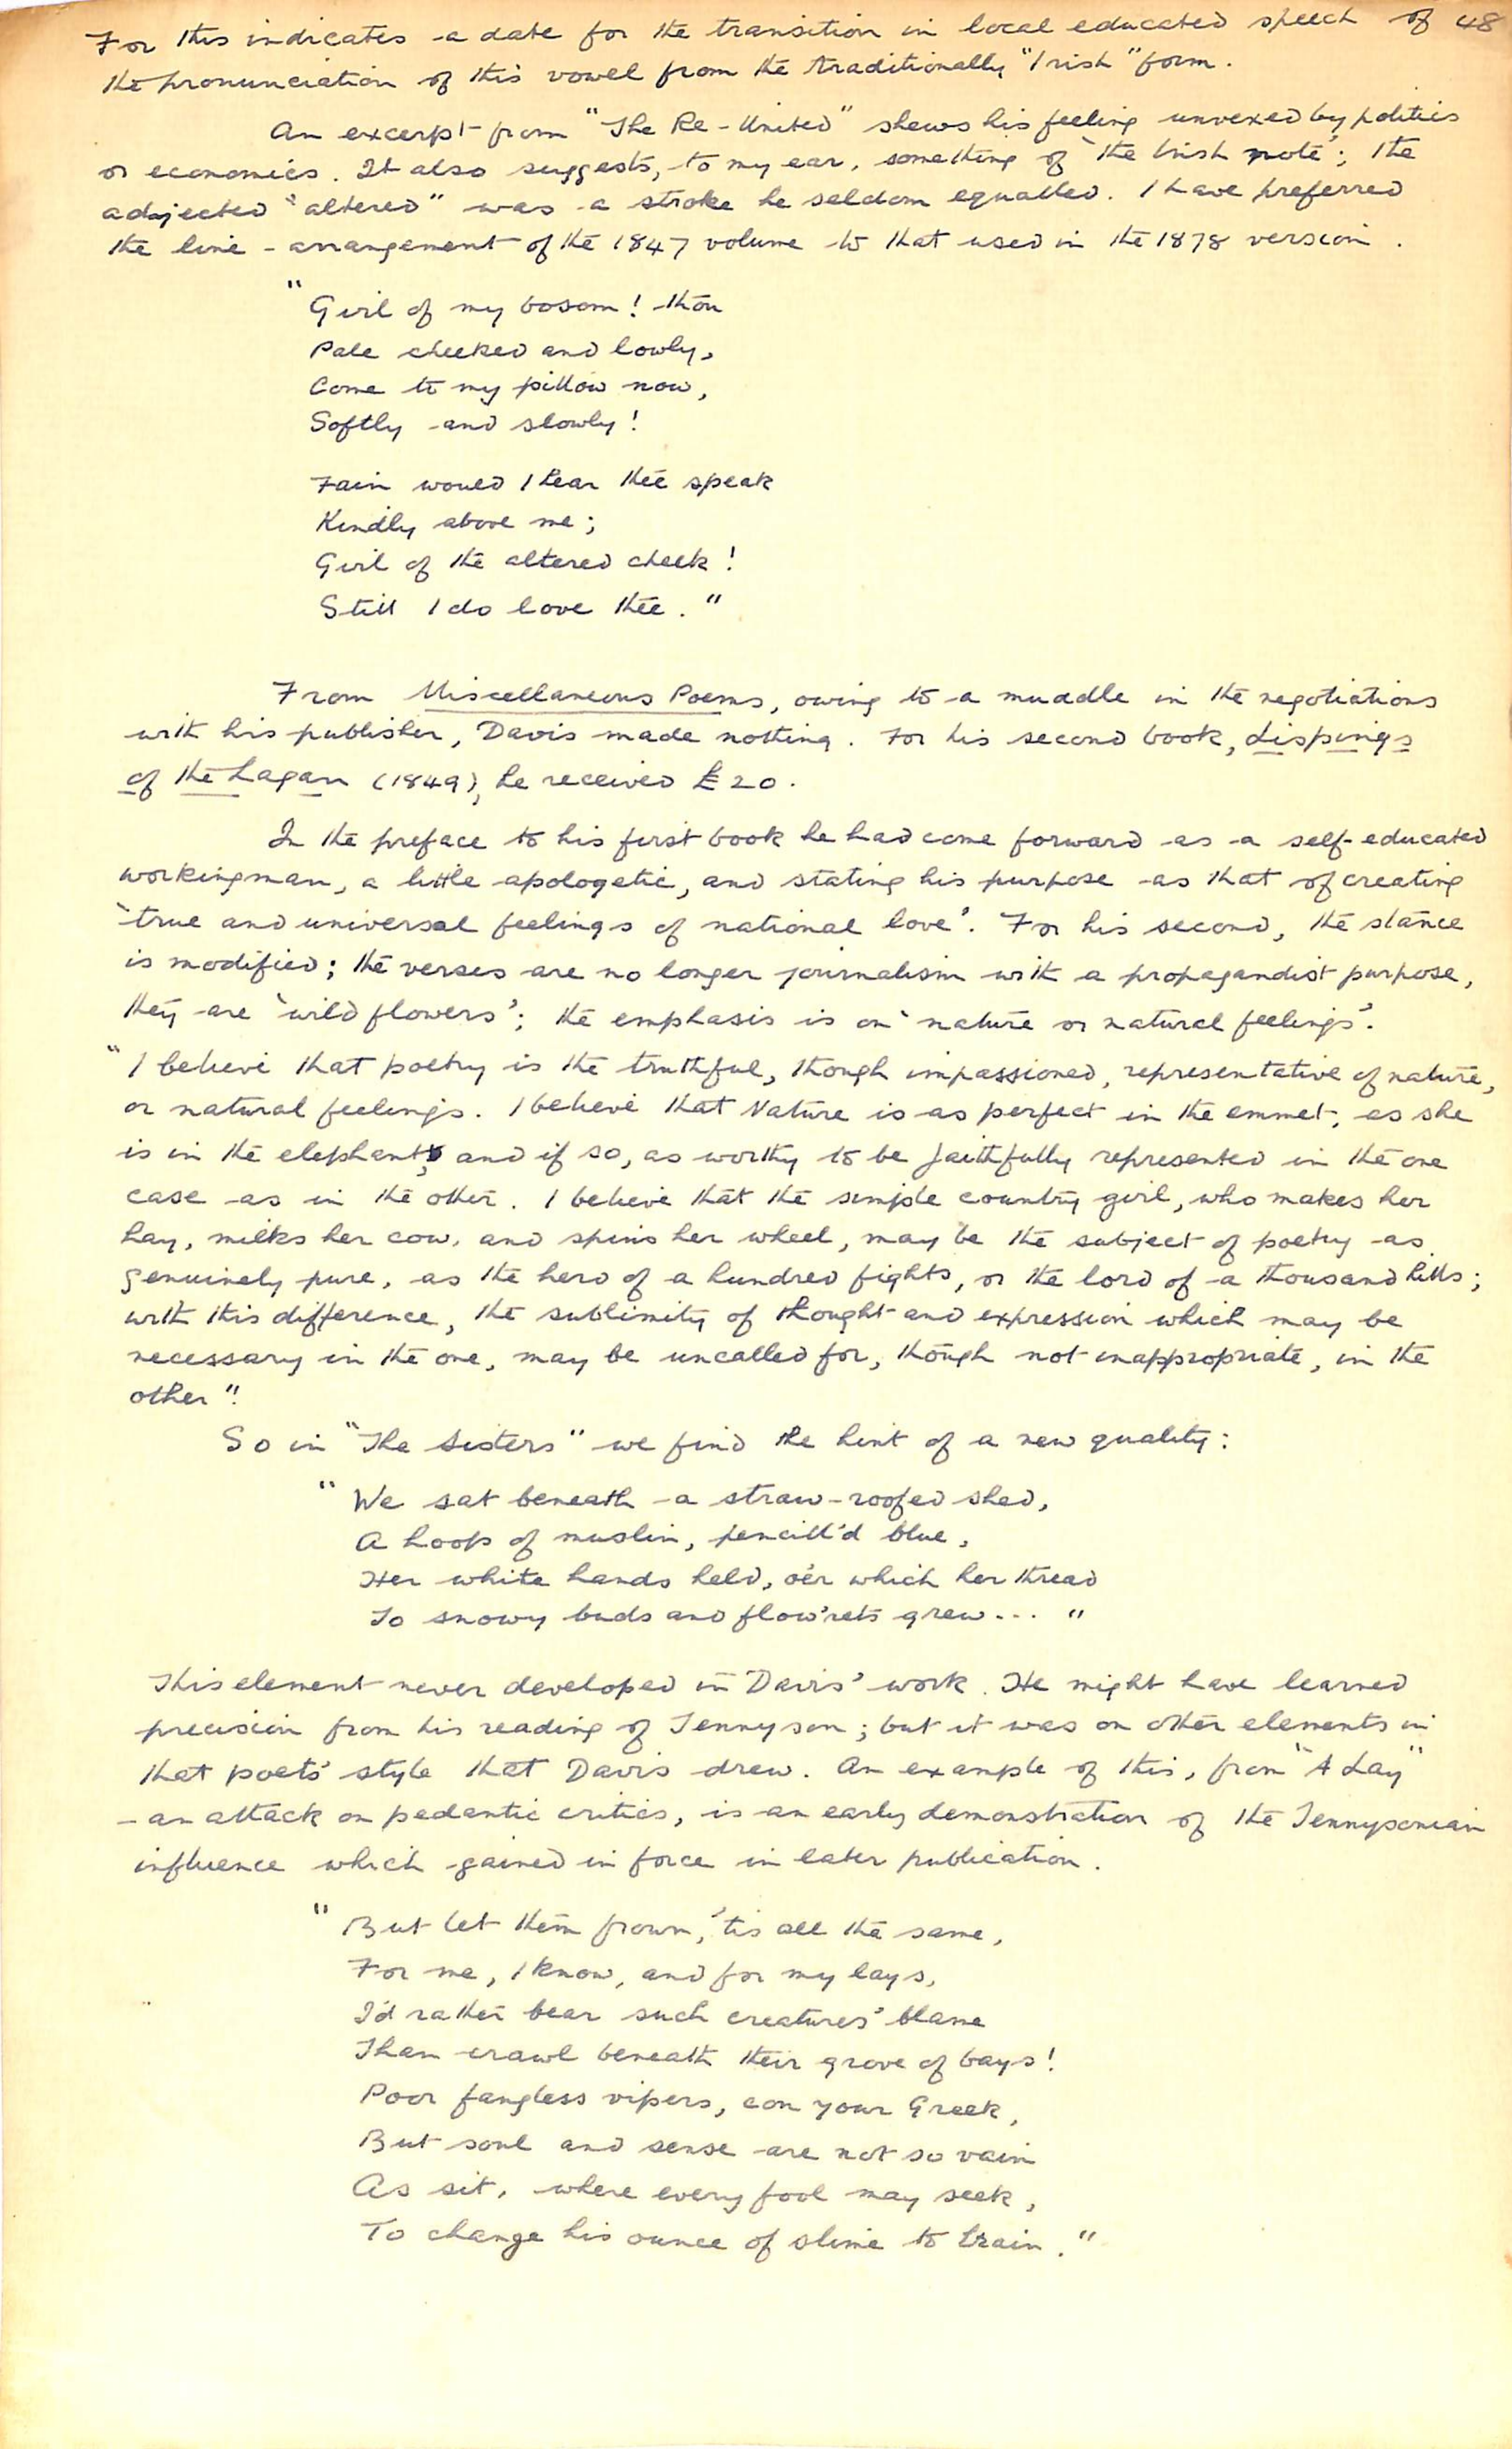 For this indicates a date for the transition in local educated speech of 48
the pronunciation of this vowel from the traditionally "Irish" form.
An excerpt from "The Re-United" shews his feeling unvexed by politics
or economics. It also suggests, to my ear, something of 'the Irish note'; the
adjected "altered" was a stroke he seldom equalled. I have preferred
the line-arrangement of the 1847 volume to that used in the 1878 version.
"Girl of my bosom! thou
Pale cheeked and lowly,
Come to my pillow now,
Softly and slowly!
Fain would I hear thee speak
Kindly above me;
Girl of the altered cheek!
Still I do love thee."
From Miscellaneous Poems, owing to a muddle in the negotiations
with his publisher, Davis made nothing. For his second book, Lispings
of the Lagan (1849), he received £20.
In the preface to his first book he had come forward as a self-educated
workingman, a little apologetic, and stating his purpose as that of creating
'true and universal feelings of national love'. For his second, the stance
is modified; the verses are no longer journalism with a propagandist purpose,
they are 'wild flowers'; the emphasis is on 'nature or natural feelings'.
"I believe that poetry is the truthful, though impassioned, representative of nature,
or natural feelings. I believe that Nature is as perfect in the emmet, as she
is in the elephant, and if so, as worthy to be faithfully represented in the one
case as in the other. I believe that the simple country girl, who makes her
hay, milks her cow, and spins her wheel, may be the subject of poetry as
genuinely pure, as the hero of a hundred fights, or the lord of a thousand hills;
with this difference, the sublimity of thought and expression which may be
necessary in the one, may be uncalled for, though not inappropriate, in the
other".
So in "The Sisters" we find the hint of a new quality:
"We sat beneath a straw-roofed shed,
A hoop of muslin, pencill'd blue,
Her white hands held, o'er which her thread
To snowy buds and flow'rets grew... "
This element never developed in Davis' work. He might have learned
precision from his reading of Tennyson; but it was on other elements in
that poets' style that Davis drew. An example of this, from "A Lay"
- an attack on pedantic critics, is an early demonstration of the Tennysonian
influence which gained in force in later publication.
"But let them frown, 'tis all the same,
For me, I know, and for my lays,
I'd rather bear such creatures' blame
Than crawl beneath their grove of bays!
Poor fangless vipers, con your Greek,
But soul and sense are not so vain
As sit, where every fool may seek,
To change his ounce of slime to brain."